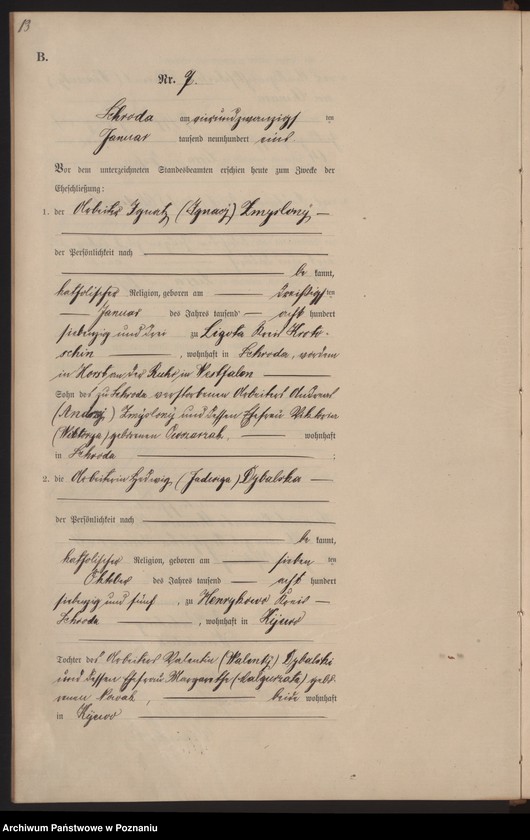 13
B.
Nr. 7.
Schroda am vierundzwanzigsten
Januar tausend neunhundert eins
Vor dem unterzeichneten Standesbeamten erschien heute zum Zwecke der
Eheschließung:
1. der Arbeiter Ignatz (Ignacy) Zmyslony
der Persönlichkeit nach
be kannt,
katholischer Religion, geboren am dreißigsten
Januar des Jahres tausend acht hundert
siebenzig und drei zu Ligota Kreis Kroto-
schin, wohnhaft in Schroda, vordem
in Horsthausen, Ruhr, in Westfalen
Sohn des zu Schroda verstorbenen Arbeiters Andreas
(Andrzej) Zmyslony und dessen Ehefrau Viktoria
(Wiktorya) geborenen wohnhaft
in Schroda :
2. die Arbeiterin Hedwig (Jadwiga) Dybalska
der Persönlichkeit nach
be kannt,
katholischer Religion, geboren am sieben ten
Oktober des Jahres tausend acht hundert
siebenzig und fünf, zu Henrykowo Kreis
Schroda, wohnhaft in Kijewo
Tochter des Arbeiters Valentin (Walenty) Dybalski
und dessen Ehefrau Margarethe (Malgorzata) gebo-
renen Nowak, beide wohnhaft
in Kijewo
Archiwum Państwowe w Poznaniu